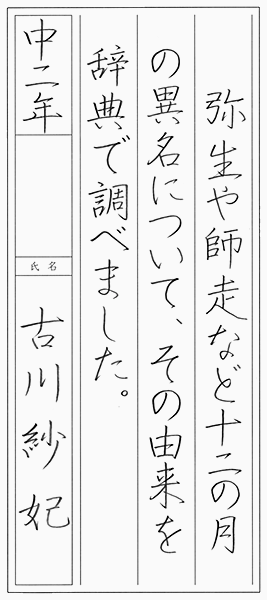 弥生や師走など十二の月
の異名について、その由来を
辞典で調べました。
中二年
氏名
古川紗妃